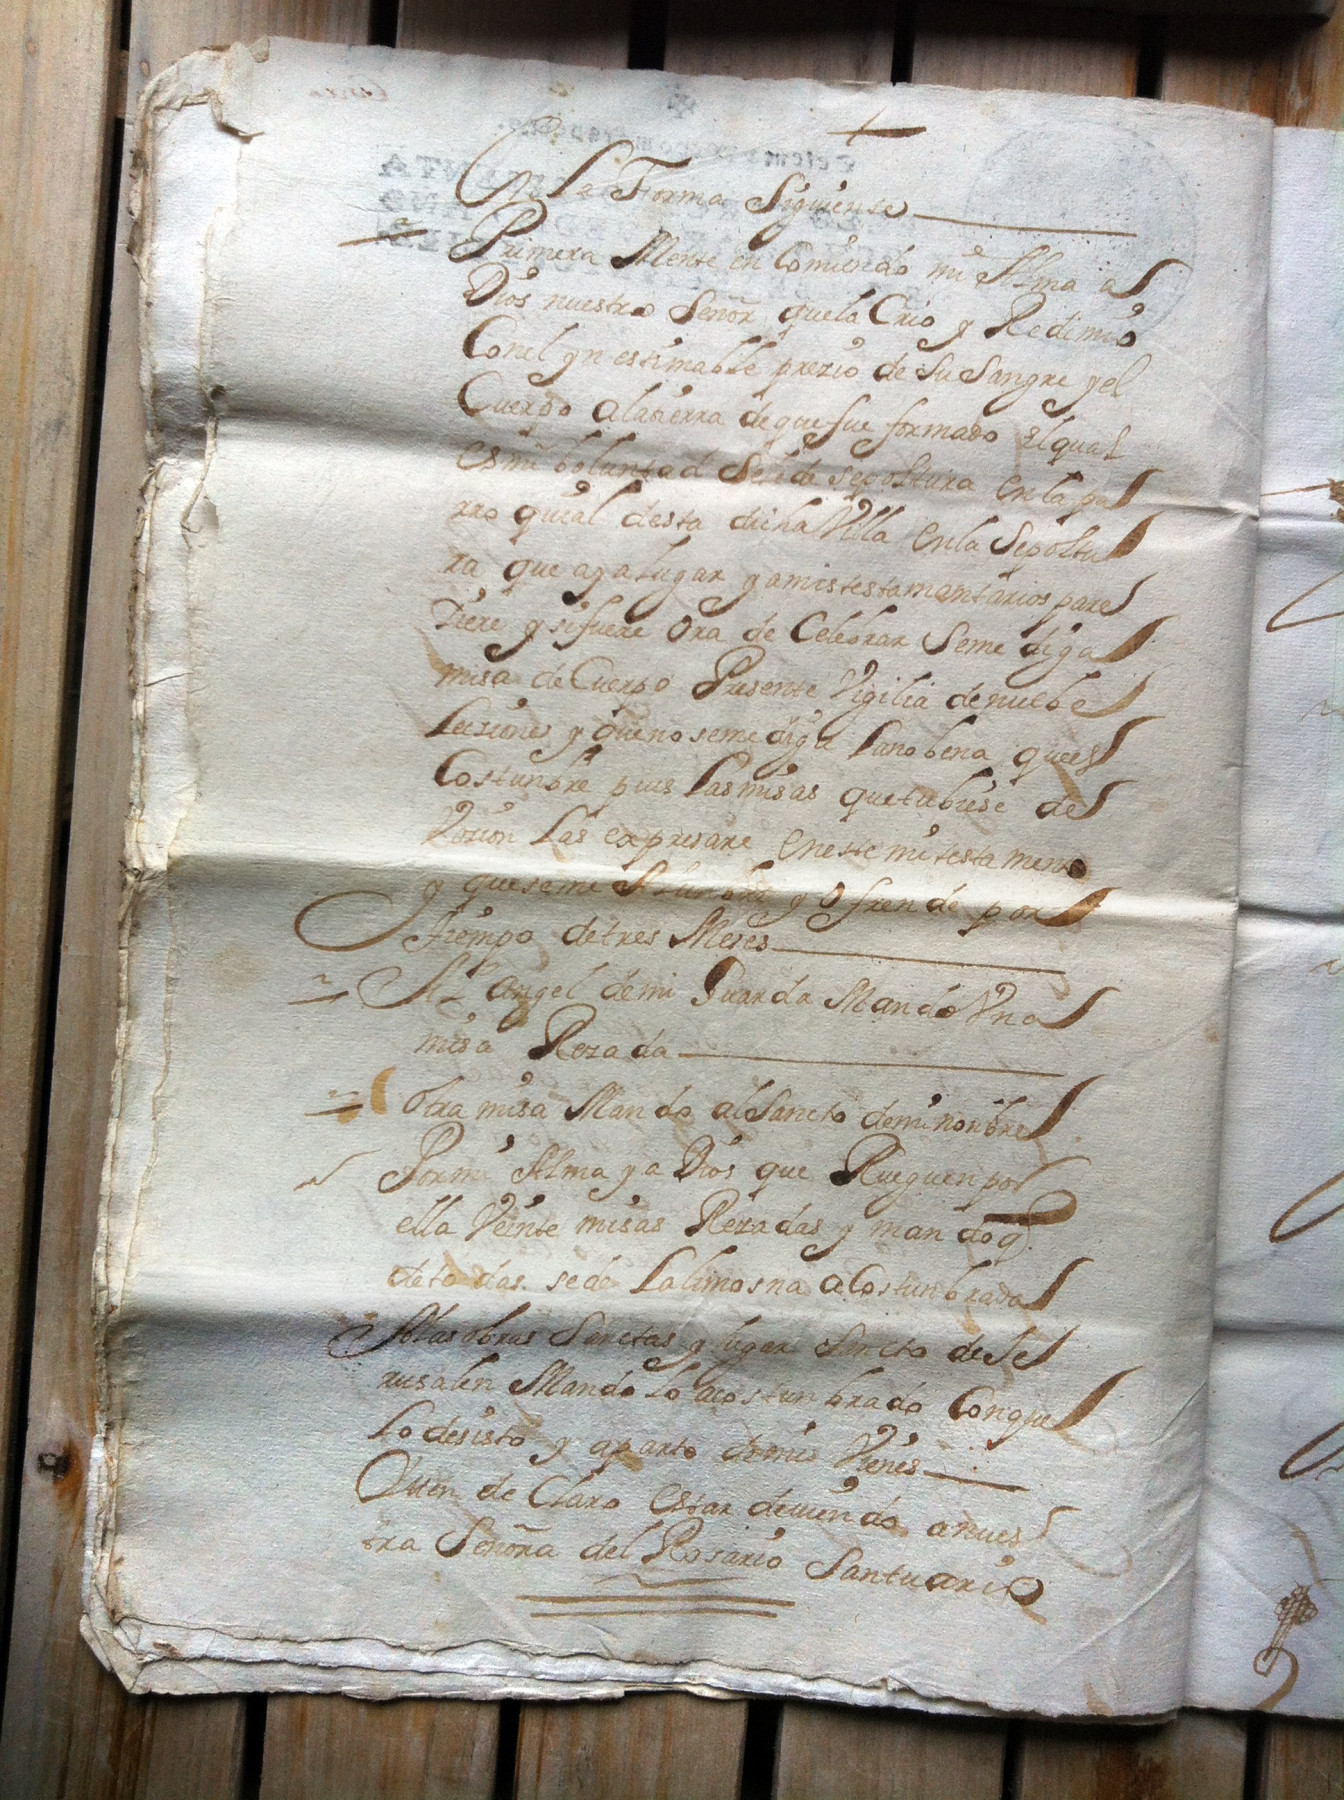 +
La Forma Siguiense
Primera Mente en Comiendo mi Alma a
Dios nuestro Señor que la Crio y Redimio
Conel yn estimable prezio de su Sangre y el
Cuerpo a la tierra de que fue formado el qual
es mi boluntad se le de sepoltura en la pa
rro quial desta dicha Villa en la Sepoltu
ra que aya lugar y a mis testamentarios pare
Ziere y si fuere ora de Celebrar Seme diga
misa de Cuerpo Presente Vigilia de nuebe
Leziones y que no seme diga La nobena que es
Costunbre pues Las misas que tubiese de
Vozion Las expresare en este mi testa mento
y que seme Alunbre y Ofrende por
tiempo de tres Meses
Al angel de mi Guarda Mando Vna
misa Rezada
Otra misa Mando al Sancto de mi nonbre
Por mi Alma y a Dios que Rueguen por
ella Veinte misas Rezadas y mando q
de to das se de La limosna a Costunbrada
A las obras Sanctas y lugar Sancto de Je
rusalen Mando lo acostunbrado Con que
Lo desisto y aparto de mis Vienes
Yten de Claro estar deviendo a nues
tra Señora del Rosario Santuario